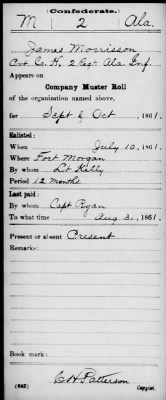 (Confederate.)
M 2 Ala.
James Morrisson
Pvt Co. H, 2 Regt. Ala. Inf.
Appears on
Company Muster Roll
of the organization named above,
for Sept & Oct, 1861.
Enlisted:
When July 10, 1861.
Where Fort Morgan
By whom Lt Kelly
Period 12 months
Last paid:
By whom Capt Ryan
To what time Aug 31, 1861.
Present or absent Present
Remarks:
Book mark:
(642) C H Patterson
Copyist.